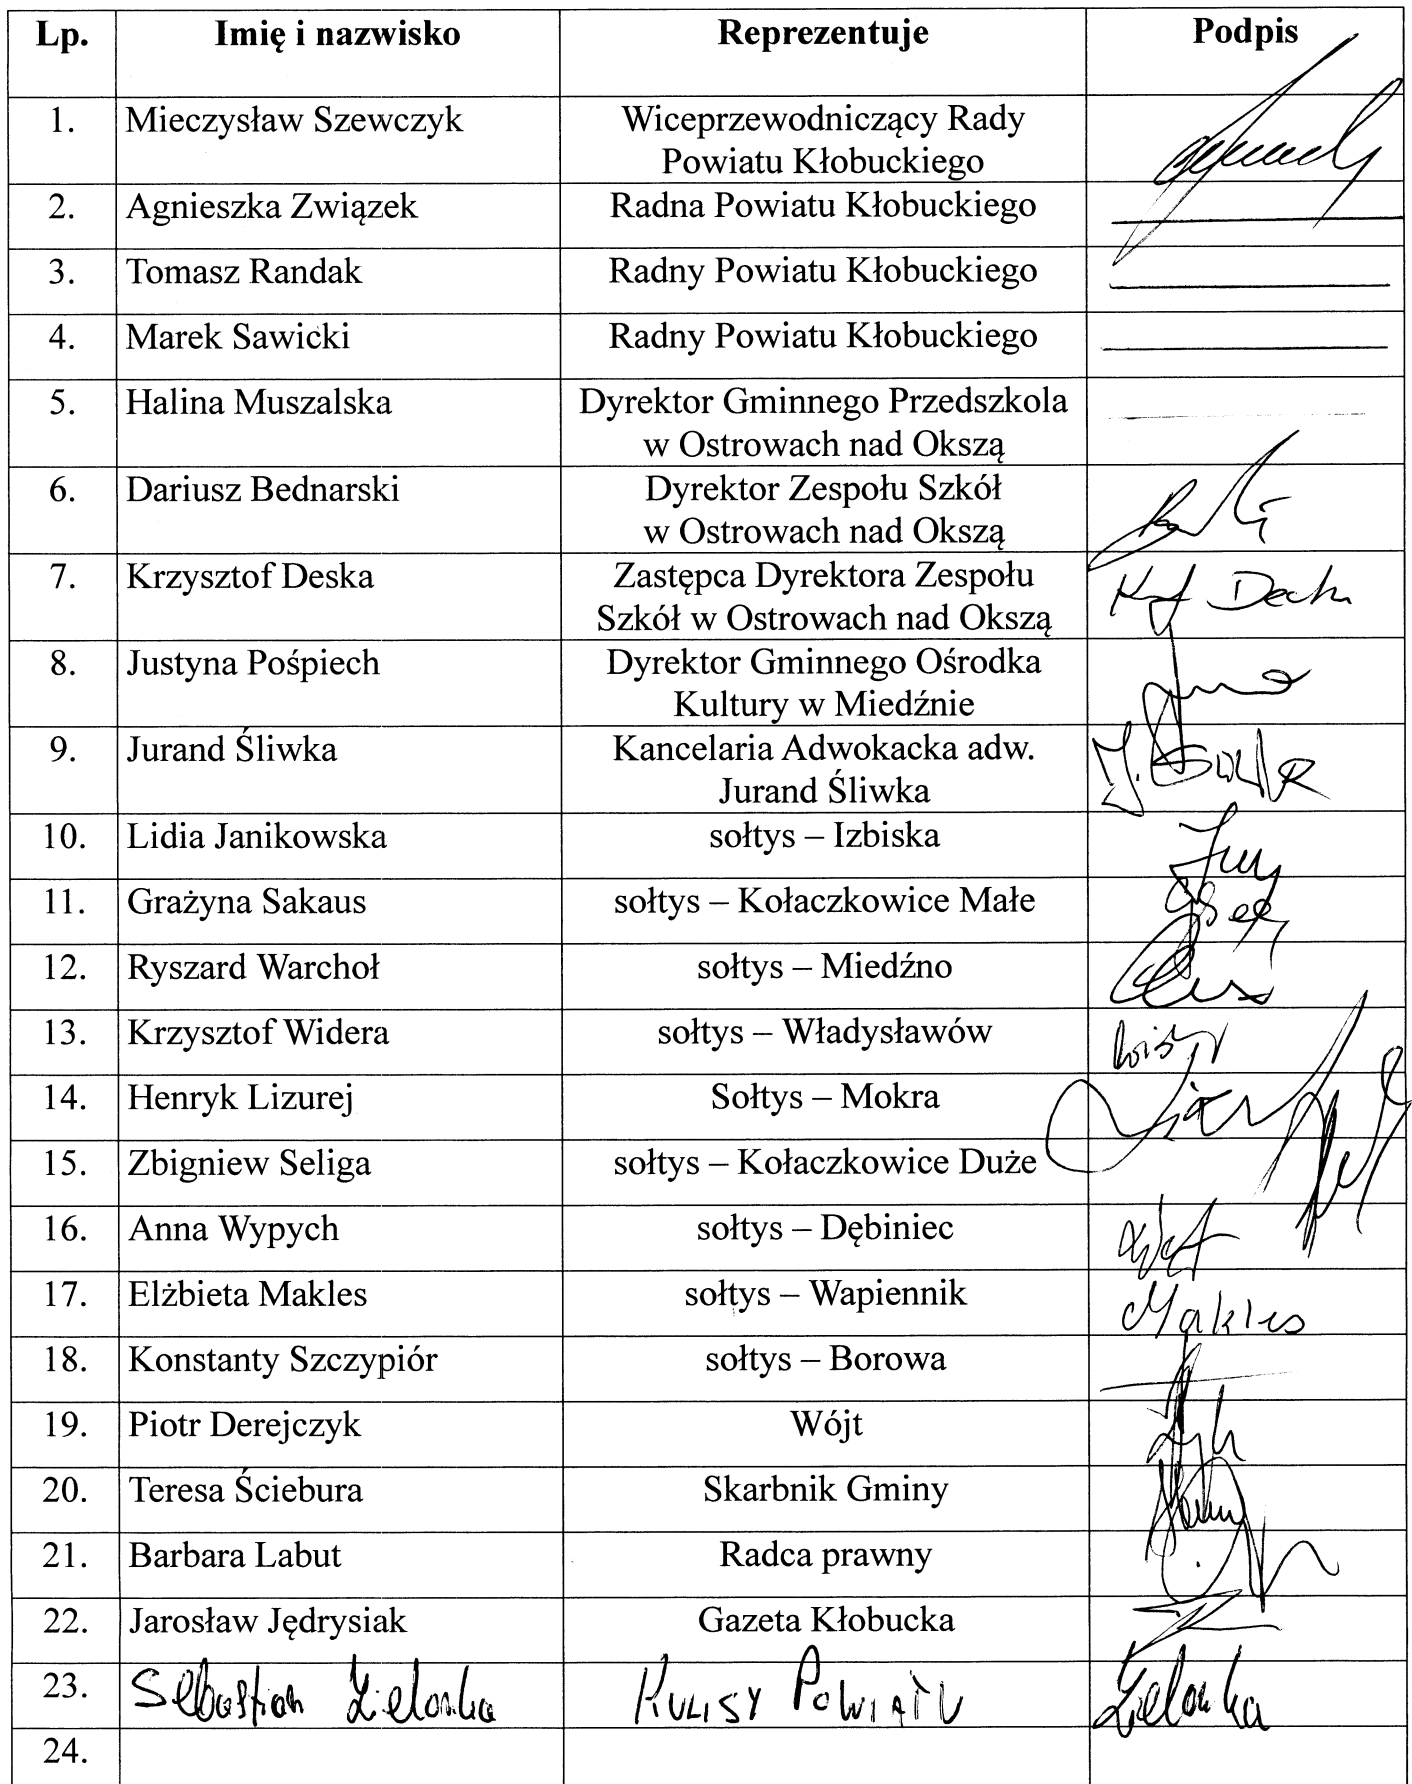 Lp. Imię i nazwisko Reprezentuje Podpis
1. Mieczysław Szewczyk Wiceprzewodniczący Rady
Powiatu Kłobuckiego
2. Agnieszka Związek Radna Powiatu Kłobuckiego
3. Tomasz Randak Radny Powiatu Kłobuckiego
4. Marek Sawicki Radny Powiatu Kłobuckiego
5. Halina Muszalska Dyrektor Gminnego Przedszkola
w Ostrowach nad Okszą
6. Dariusz Bednarski Dyrektor Zespołu Szkół
w Ostrowach nad Okszą
7. Krzysztof Deska Zastępca Dyrektora Zespołu
Szkół w Ostrowach nad Okszą
8. Justyna Pośpiech Dyrektor Gminnego Ośrodka
Kultury w Miedźnie
9. Jurand Śliwka Kancelaria Adwokacka adw.
Jurand Śliwka
10. Lidia Janikowska sołtys – Izbiska
11. Grażyna Sakaus sołtys – Kołaczkowice Małe
12. Ryszard Warchoł sołtys – Miedźno
13. Krzysztof Widera sołtys – Władysławów
14. Henryk Lizurej Sołtys – Mokra
15. Zbigniew Seliga sołtys – Kołaczkowice Duże
16. Anna Wypych sołtys – Dębiniec
17. Elżbieta Makles sołtys – Wapiennik Makles
18. Konstanty Szczypiór sołtys – Borowa
19. Piotr Derejczyk Wójt
20. Teresa Ściebura Skarbnik Gminy
21. Barbara Labut Radca prawny
22. Jarosław Jędrysiak Gazeta Kłobucka
23. Sebastian Zielonka KULISY POWIATU Zielonka
24.